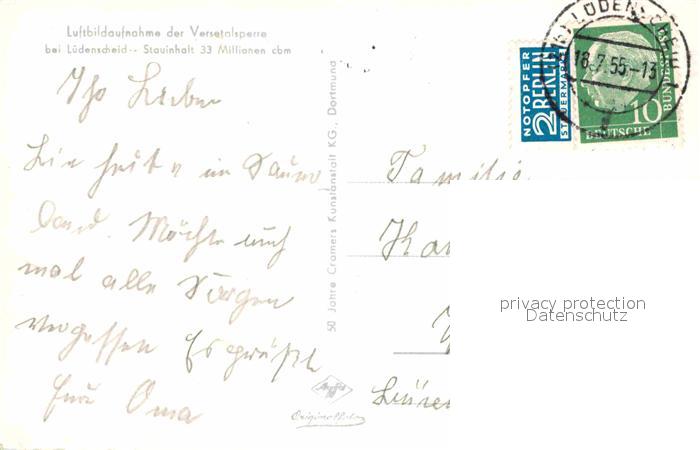 Luftbildaufnahme der Versetalsperre
bei Lüdenscheid -- Stauinhalt 33 Millionen cbm
Ihr Lieben
Bin heute im Sauer
land. Möchte auch
mal alle Sorgen
vergessen Es grüßt
Eure Oma
50 Jahre Cramers Kunstanstalt KG., Dortmund
NOTOPFER
2 BERLIN
STEUERMARKE
LÜDENSCHEID
18.7.55.-13
10
DEUTSCHE
BUNDESPOST
Familie
privacy protection
Datenschutz